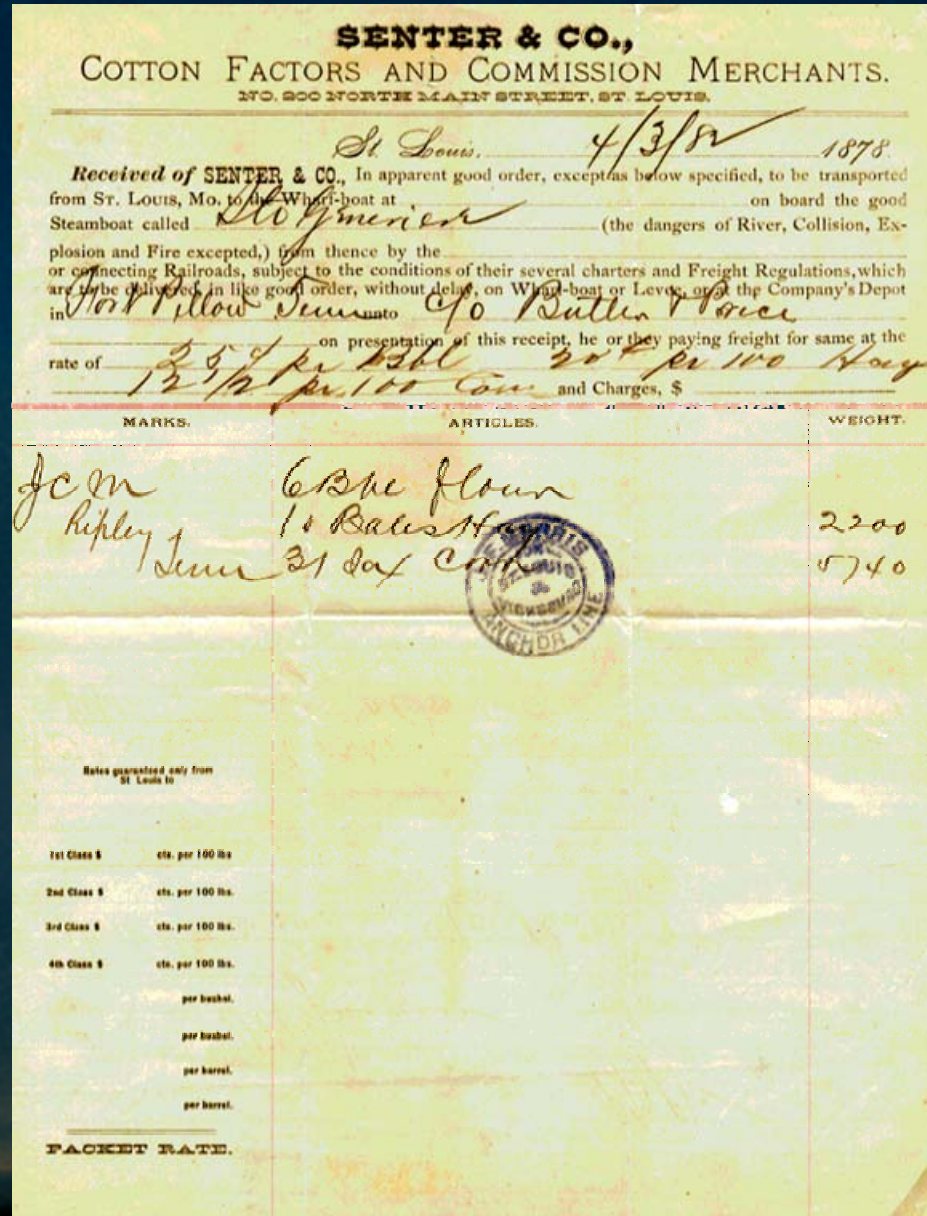 SENTER & CO.,
COTTON FACTORS AND COMMISSION MERCHANTS.
NO. 200 NORTH MAIN STREET, ST. LOUIS.
St. Louis, 4/3/82 1878
Received of SENTER & CO., In apparent good order, except as below specified, to be transported
from ST. LOUIS, MO. to the Wharf-boat at on board the good
Steamboat called (the dangers of River, Collision, Ex-
plosion and Fire excepted,) from thence by the
or connecting Railroads, subject to the conditions of their several charters and Freight Regulations, which
are to be delivered, in like good order, without delay, on Wharf-boat or Levee, or at the Company's Depot
in Fort Pillow Tenn unto c/o Butler & Price
on presentation of this receipt, he or they paying freight for same at the
rate of 25¢ pr Bbl 20¢ pr 100 Hay
12 1/2 pr 100 Corn and Charges, $
MARKS. ARTICLES. WEIGHT.
JCM 6 Bbl Flour
Ripley 10 Bales Hay 2200
Tenn 31 Sax Corn 5740
ST. LOUIS
&
VICKSBURG
ANCHOR LINE
Rates guaranteed only from
St Louis to
1st Class $ cts. per 100 lbs
2nd Class $ cts. per 100 lbs.
3rd Class $ cts. per 100 lbs.
4th Class $ cts. per 100 lbs.
per bushel.
per bushel.
per barrel.
per barrel.
PACKET RATE.